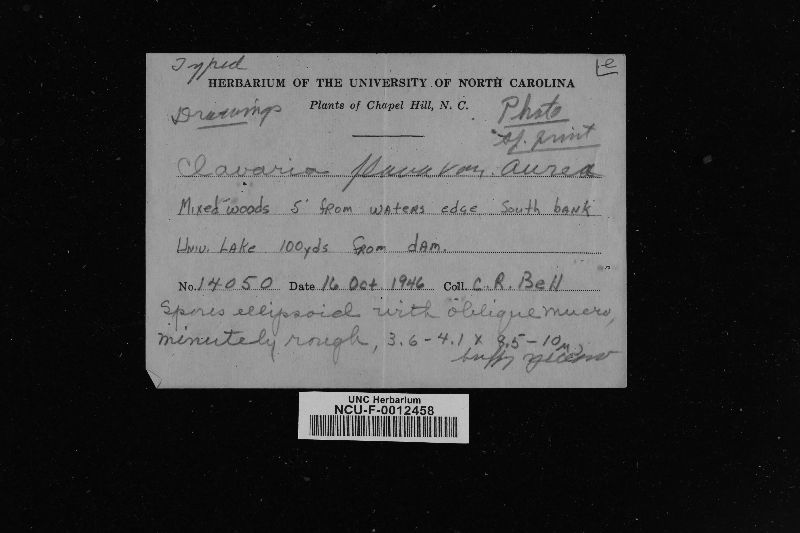 Typed
e
HERBARIUM OF THE UNIVERSITY OF NORTH CAROLINA
Drawings
Plants of Chapel Hill, N. C.
Photo
of print
Clavaria flava var. aurea
Mixed woods 5' from waters edge South bank
Univ. Lake 100yds from dam.
No. 14050 Date 16 Oct. 1946 Coll. C. R. Bell
Spores ellipsoid with oblique mucro,
minutely rough, 3.6-4.1 x 8.5-10µ,
buffy yellow
UNC Herbarium
NCU-F-0012458